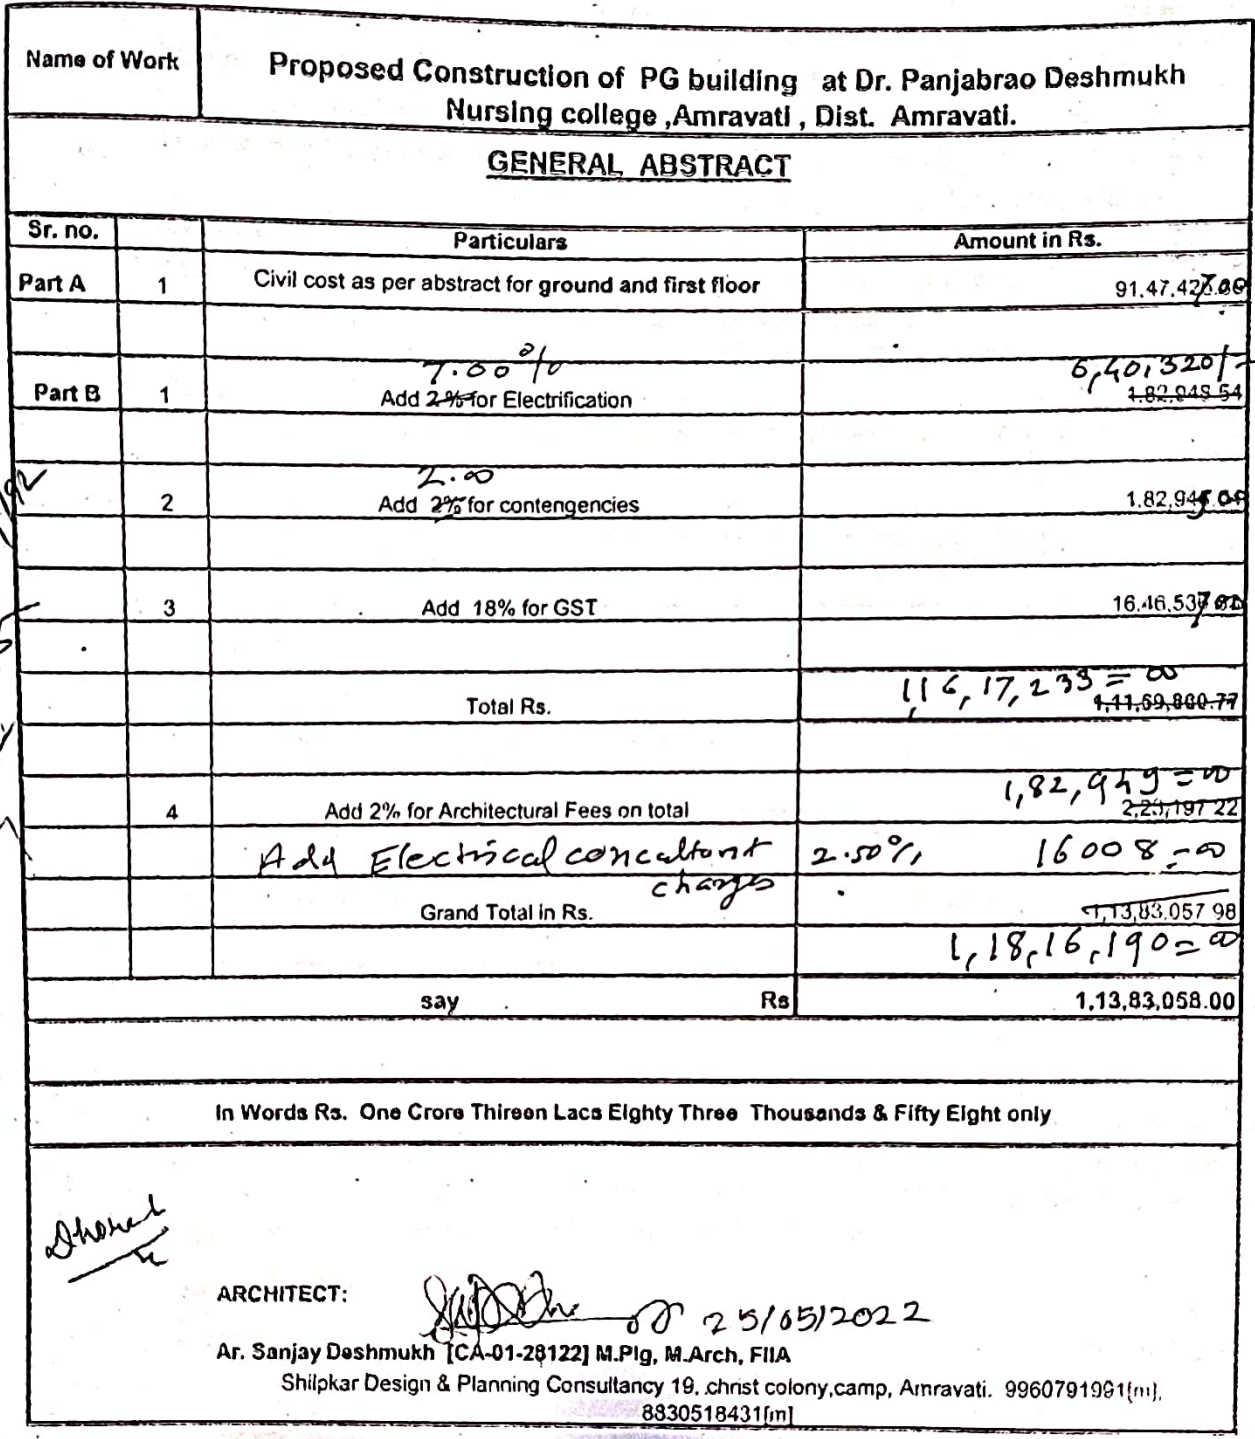 Name of Work
Proposed Construction of PG building at Dr. Panjabrao Deshmukh
Nursing college ,Amravati , Dist. Amravati.
GENERAL ABSTRACT
Sr. no. Particulars Amount in Rs.
Part A 1 Civil cost as per abstract for ground and first floor 91,47,427.00
7.00% 6,40,320/-
Part B 1 Add 2% for Electrification 1,82,948.54
2.00
2 Add 2% for contengencies 1,82,949.00
3 Add 18% for GST 16,46,537
116,17,233=00
Total Rs. 1,11,59,860.77
1,82,949=00
4 Add 2% for Architectural Fees on total 2,23,197.22
Add Electrical concaltant 2.50% 16008=00
charges
Grand Total in Rs. 1,13,83,057.98
1,18,16,190=00
say Rs 1,13,83,058.00
In Words Rs. One Crore Thireen Lacs Eighty Three Thousands & Fifty Eight only
ARCHITECT:
25/05/2022
Ar. Sanjay Deshmukh [CA-01-28122] M.Plg, M.Arch, FIIA
Shilpkar Design & Planning Consultancy 19, christ colony,camp, Amravati. 9960791991[m],
8830518431[m]